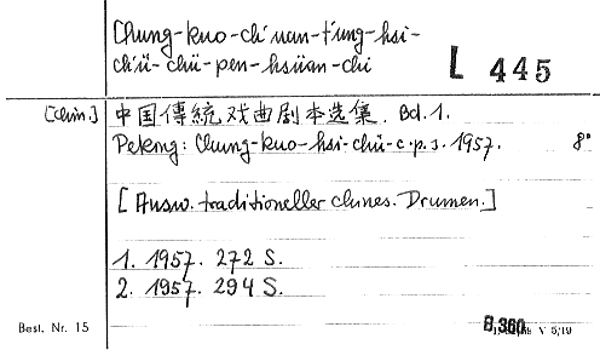 Chung-kuo-ch'uan-t'ung-hsi-
ch'ü-chü-pen-hsüan-chi
L 445
[chin.] 中国傳統戏曲剧本选集. Bd. 1.
Peking: Chung-kuo-hsi-chü-c.p.s. 1957. 8°
[Ausw. traditioneller chines. Dramen.]
1. 1957. 272 S.
2. 1957. 294 S.
8,360
Best. Nr. 15 V 5/19